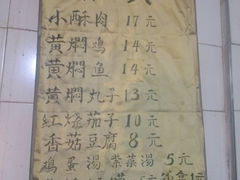 小酥肉 17元
黄焖鸡 14元
黄焖鱼 14元
黄焖丸子 13元
红烧茄子 10元
香菇豆腐 8元
鸡蛋汤 紫菜汤 5元